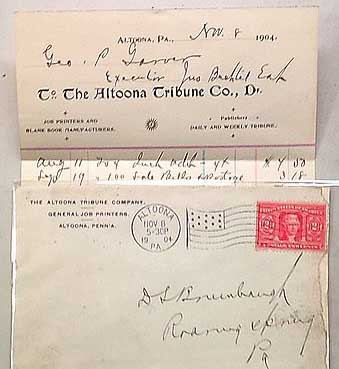 ALTOONA, PA., Nov. 8 1904.
Geo. P. Garver
Executor Jno Bechtel Est
To The Altoona Tribune Co., Dr.
JOB PRINTERS AND
BLANK BOOK MANUFACTURERS.
Publishers
DAILY AND WEEKLY TRIBUNE.
Aug 11 Inch Adv 4x
Sept 19 100 Sale Bills & Postage 3 18
THE ALTOONA TRIBUNE COMPANY,
GENERAL JOB PRINTERS,
ALTOONA, PENN'A.
ALTOONA
NOV 8
5-30P
1904
PA
2
2
D S Brumbaugh
Roaring Spring
Pa